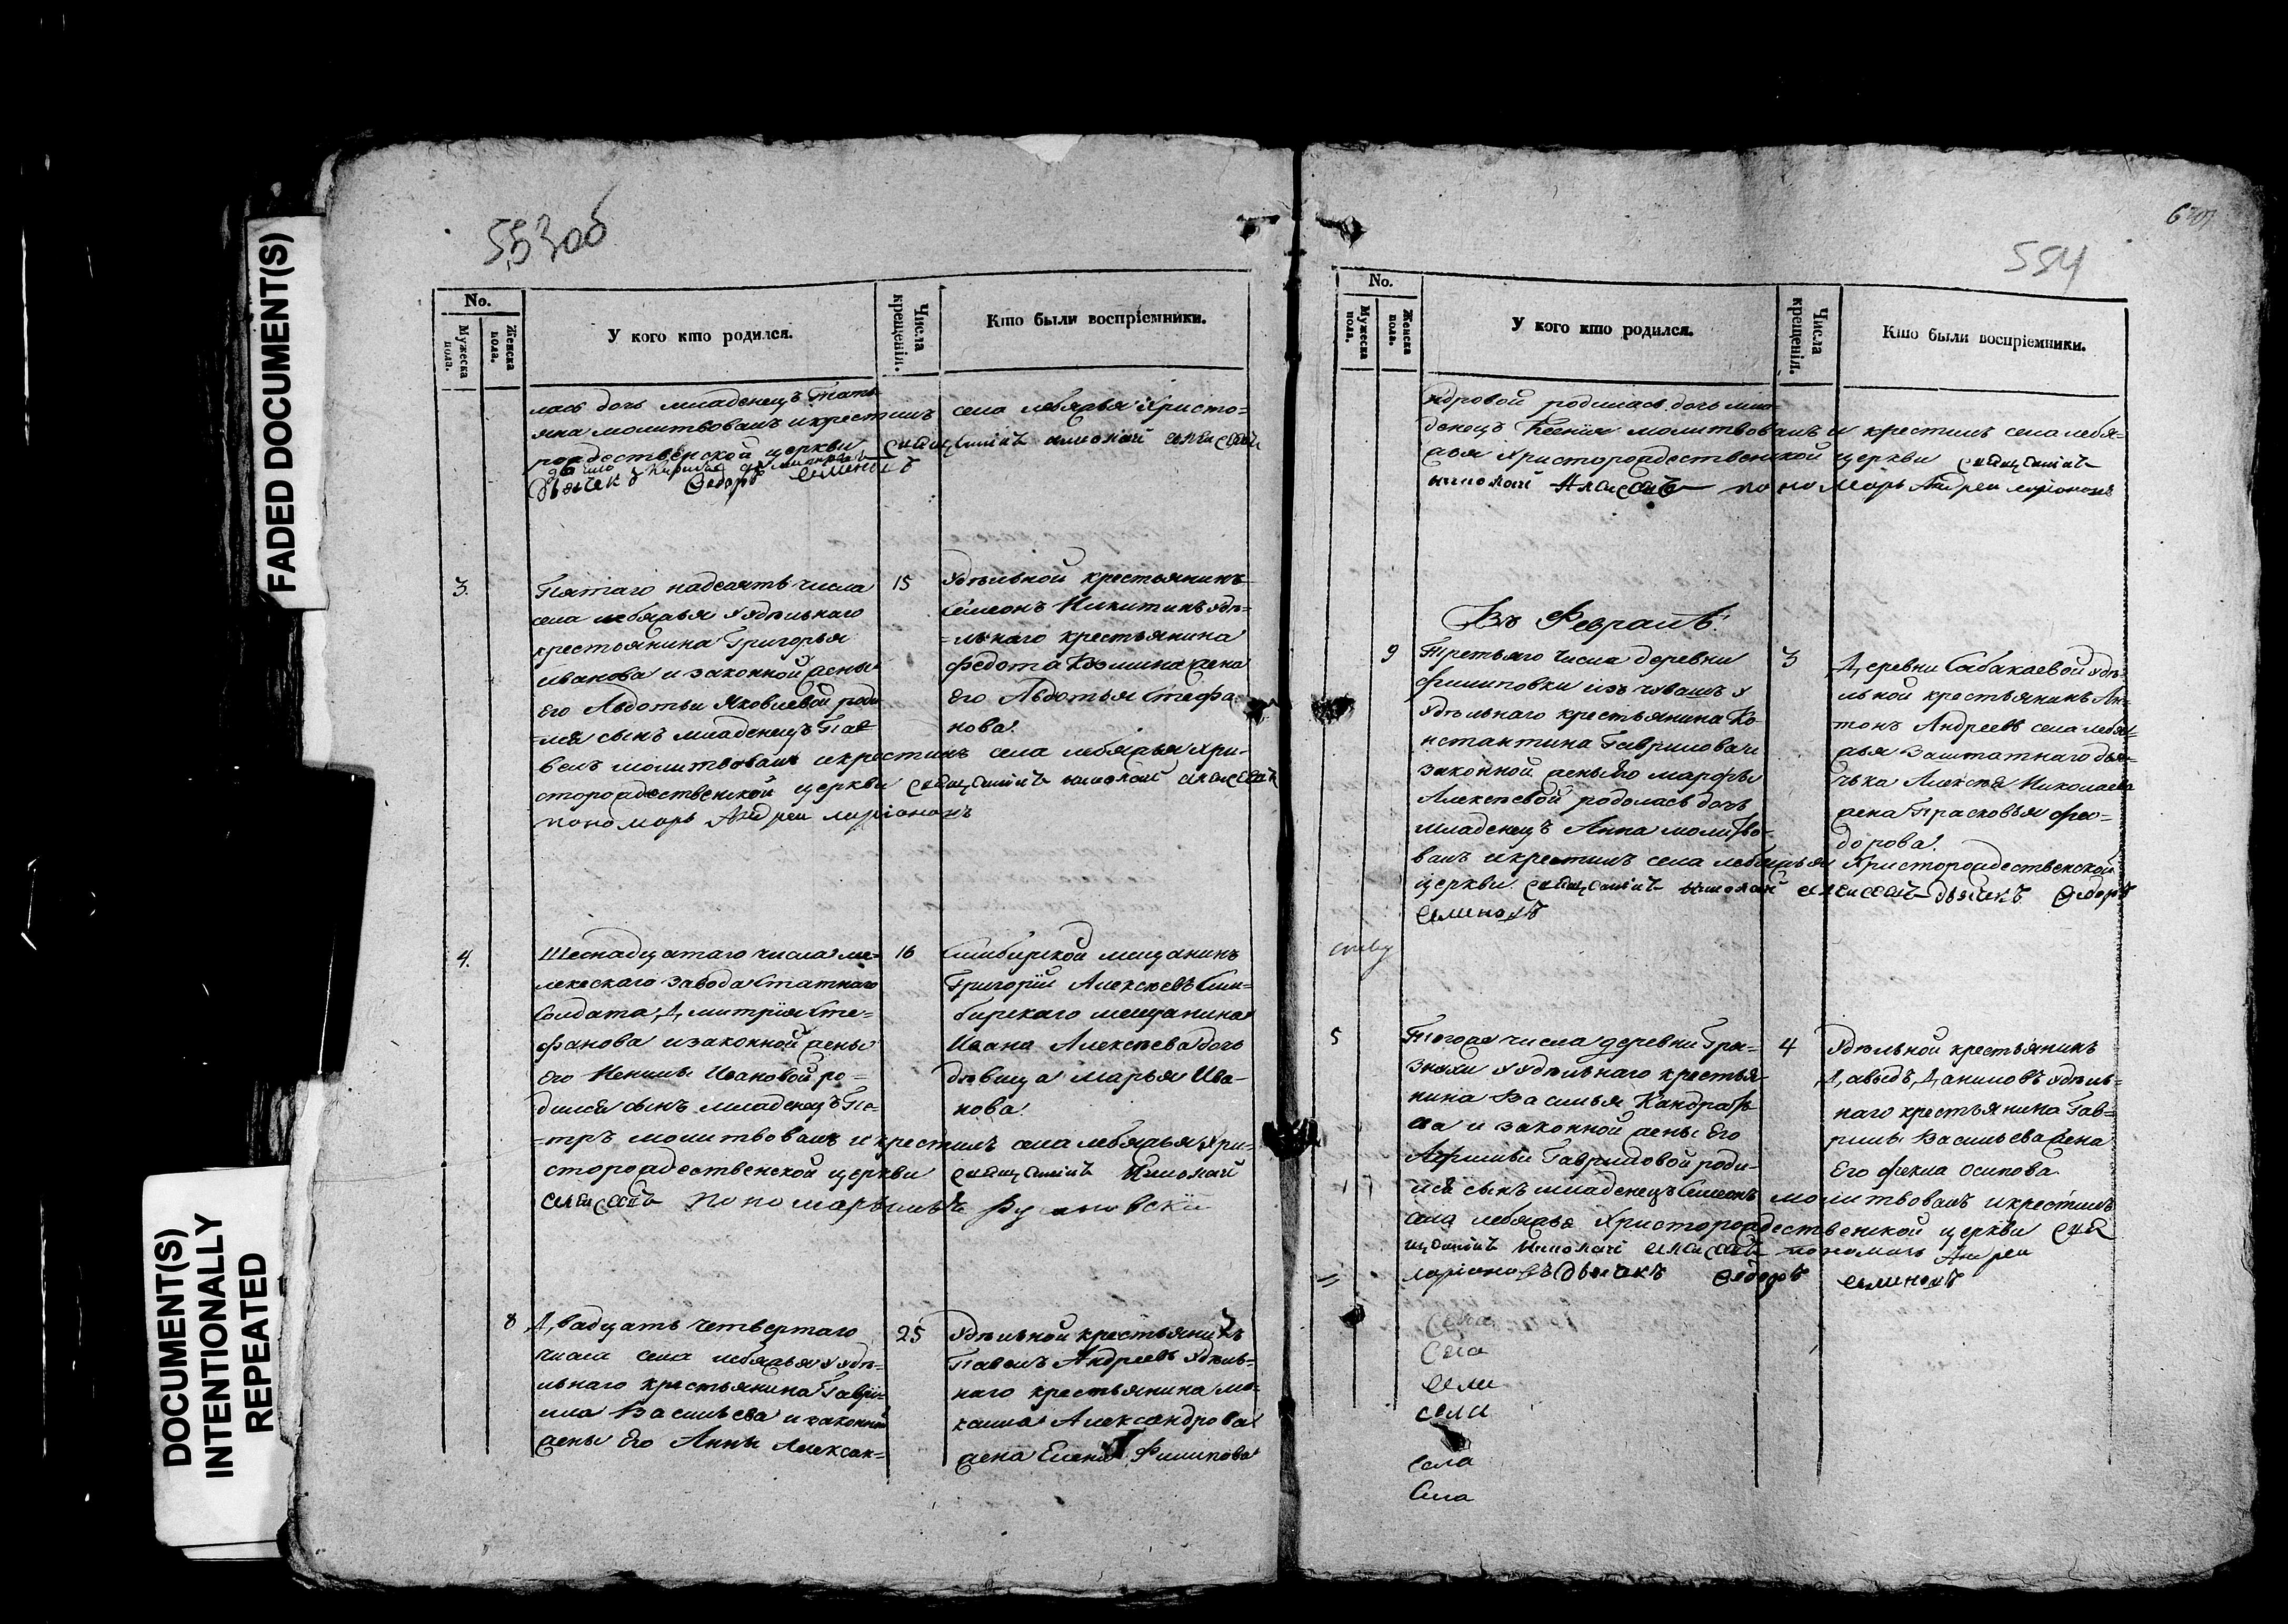 FADED DOCUMENT(S)
DOCUMENT(S)
INTENTIONALLY
REPEATED
553об
No.
Мужеска пола.
Женска пола.
У кого кто родился.
Числа крещенія.
Кто были воспріемники.
лась дочь младенецъ Тать-
яна молитвовалъ и крестилъ села лебяжья Христо=
рождественской церкви священникъ николай алексеевъ
дьячекъ Федоръ семеновъ
3.
Пятаго надесять числа
села лебяжья Удѣльнаго
крестьянина Григорья
иванова и законной жены
Его Авдотьи Яковлевой роди
=лся сынъ младенецъ Па=
велъ молитвовалъ и крестилъ села лебяжья Хри-
сторождественской церкви священникъ николай алексеевъ
пономарь Андреи ларіоновъ
15
Удѣльной крестьянинъ
Семеонъ Никитинъ Удѣ=
=льнаго крестьянина
Федота Козмина жена
Его Авдотья Стефа
нова.
4.
Шеснадцатаго числа ме=
лекескаго завода статнаго
Солдата Дмитрія Сте=
фанова и законной жены
Его Ненилы Ивановой ро=
дился сынъ младенецъ Пе=
=тръ молитвовалъ и крестилъ села лебяжья Хри-
сторождественской церкви священникъ Николай
алексеевъ пономарь
16
Симбирской мещанинъ
Григорій Алексѣевъ Сим=
бирскаго мещанина
Ивана Алексѣева дочь
дѣвица Марья Ива=
нова.
8
Двадцать четвертаго
числа села лебяжья Удѣ=
льнаго крестьянина Гаври-
ила Васильева и законной
жены Его Анны Алексан=
25
Удѣльной крестьянинъ
Павелъ Андреевъ Удѣль=
наго крестьянина
Александрова
жена Елена Филипова
554
No.
Мужеска пола.
Женска пола.
У кого кто родился.
Числа крещенія.
Кто были воспріемники.
ндровой родилась дочь мла=
денецъ Ксенія молитвовалъ и крестилъ села лебя=
жья Христорождественской церкви священникъ
николай Алексеевъ пономарь Андреи ларіоновъ
Въ Февралѣ.
9
Третьяго числа деревни
филиповки изъ чувашъ у
Удѣльнаго крестьянина Ко=
нстантина Гаврилова и
законной жены Его марфы
Алексѣевой родолась дочь
младенецъ Анна молитво-
валъ и крестилъ села лебяжья Христорождественской
церкви священникъ николай алексеевъ дьячекъ Федоръ
семеновъ
3
Деревни Сабакаевой Удѣ=
льной крестьянинъ Ан=
тонъ Андреевъ села лебя=
жья Заштатнаго дья=
чька Алексѣя Николаева
жена Прасковья Фео=
дорова.
5
Тогоже числа деревни Гря=
знухи Удѣльнаго крестья
нина Василья Кандрать
ева и законной жены Его
Афимьи Гавриловой роди=
лся сынъ младенецъ Симеонъ молитвовалъ и крестилъ
села лебяжья Христорождественской церкви свя
щенникъ Николай алексеевъ пономарь Андреи
ларіоновъ дьячекъ Федоръ семеновъ
4
Удѣльной крестьянинъ
Давыдъ Даниловъ Удѣль=
наго крестьянина Гав=
рилы Васильева жена
Его фекла осипова
Села
Села
сели
села
села
Села